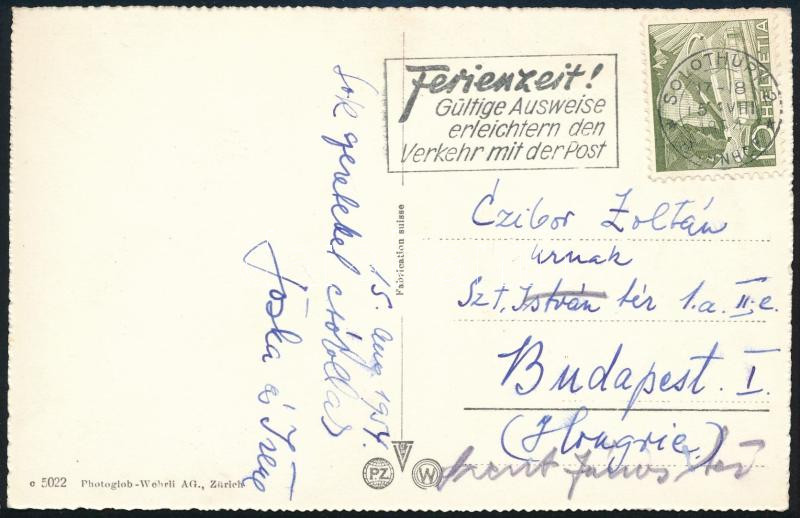 Sok szeretettel csókollak
15. aug 1954.
Jóska és Irene
Fabrication suisse
c 5022 Photoglob-Wehrli AG., Zürich
PZ
W
Ferienzeit!
Gültige Ausweise
erleichtern den
Verkehr mit der Post
HELVETIA
10
SOLOTHURN
17-18
VIII
Czibor Zoltán
urnak
Szt. István tér 1.a II.e.
Budapest. I.
(Hongrie)
Szent János tér